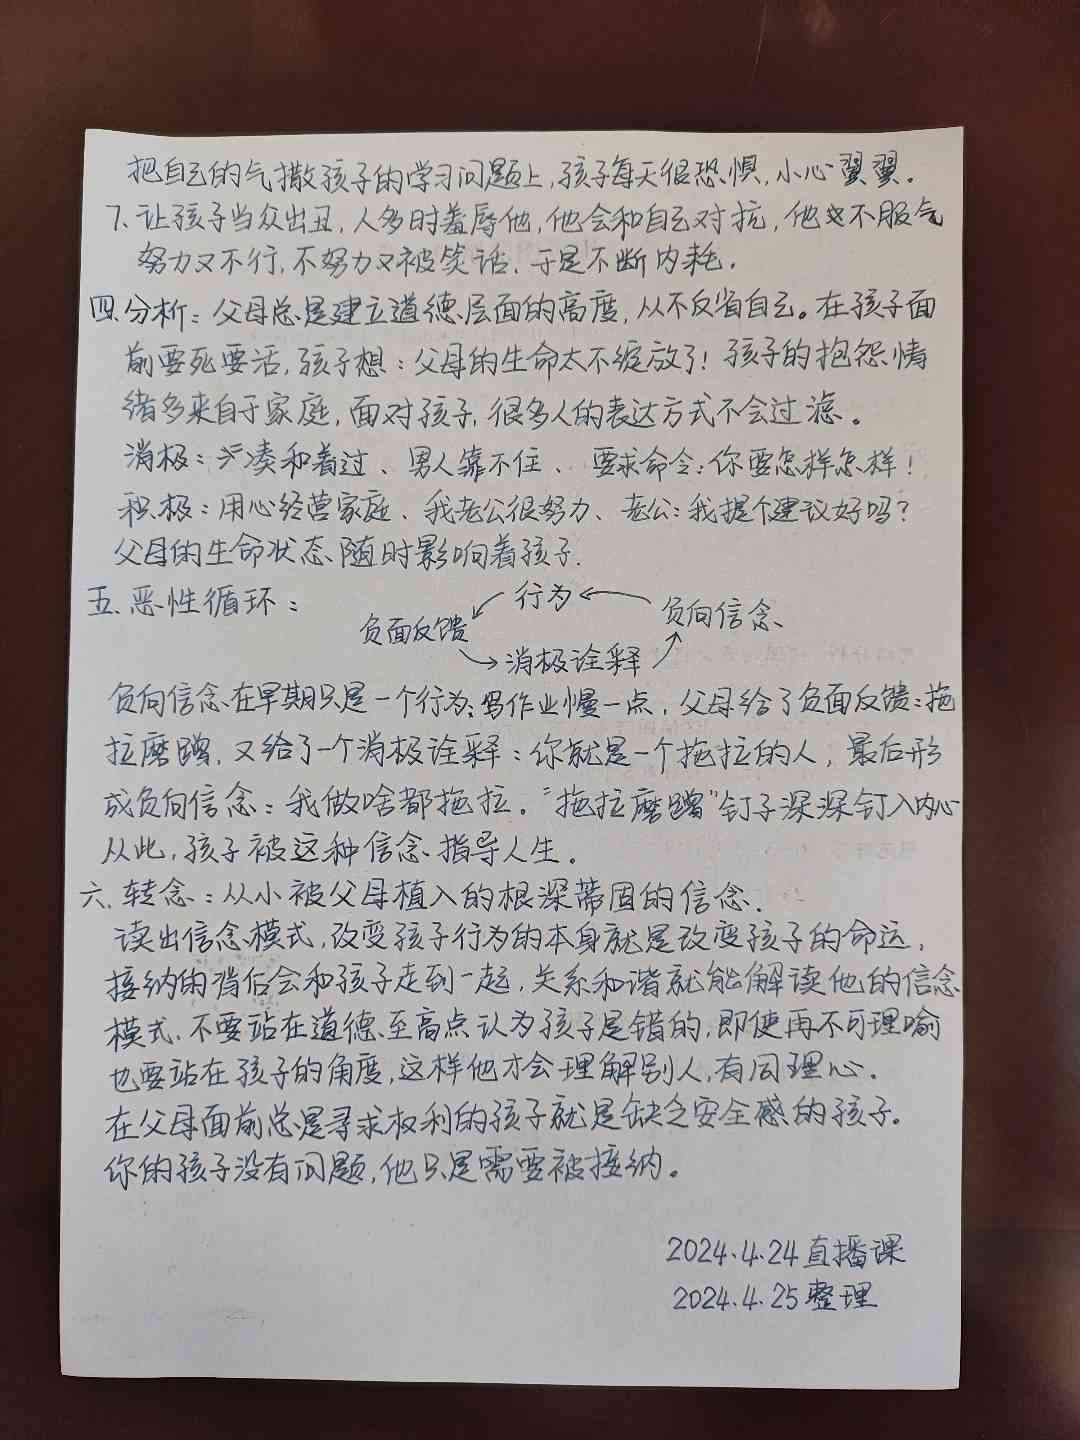 把自己的气撒孩子的学习问题上,孩子每天很恐惧,小心翼翼.
7、让孩子当众出丑,人多时羞辱他,他会和自己对抗,他也不服气
努力又不行,不努力又被笑话、于是不断内耗.
四、分析:父母总是建立道德层面的高度,从不反省自己。在孩子面
前要死要活,孩子想:父母的生命太不绽放了!孩子的抱怨情
绪多来自于家庭,面对孩子,很多人的表达方式不会过滤。
消极:凑和着过、男人靠不住、要求命令:你要怎样怎样!
积极:用心经营家庭、我老公很努力、老公:我提个建议好吗?
父母的生命状态随时影响着孩子.
五、恶性循环:
行为
负向信念
负面反馈
消极诠释
负向信念在早期只是一个行为:写作业慢一点,父母给了负面反馈:拖
拉磨蹭,又给了一个消极诠释:你就是一个拖拉的人,最后形
成负向信念:我做啥都拖拉。“拖拉磨蹭”钉子深深钉入内心
从此,孩子被这种信念指导人生。
六、转念:从小被父母植入的根深蒂固的信念.
读出信念模式,改变孩子行为的本身就是改变孩子的命运,
接纳的背后会和孩子走到一起,关系和谐就能解读他的信念
模式、不要站在道德至高点认为孩子是错的,即使再不可理喻
也要站在孩子的角度,这样他才会理解别人,有同理心.
在父母面前总是寻求权利的孩子就是缺乏安全感的孩子。
你的孩子没有问题,他只是需要被接纳。
2024.4.24直播课
2024.4.25整理